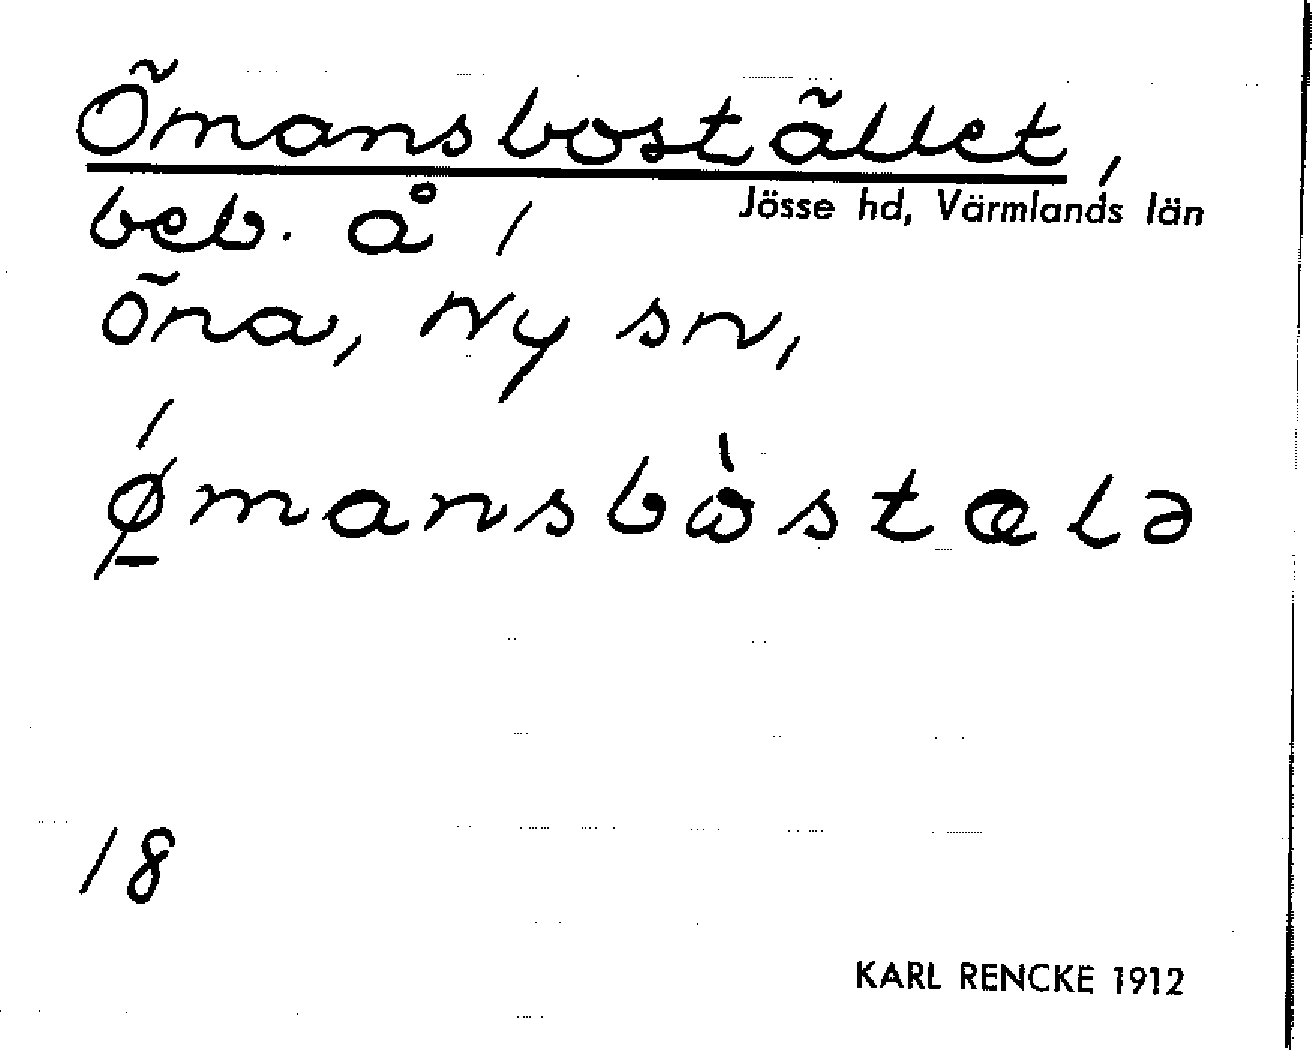 Ömansbostället,
Jösse hd, Värmlands län
beb. å /
öna, Ny sn,
ǿ̱mansbὼstælə
18
KARL RENCKE 1912